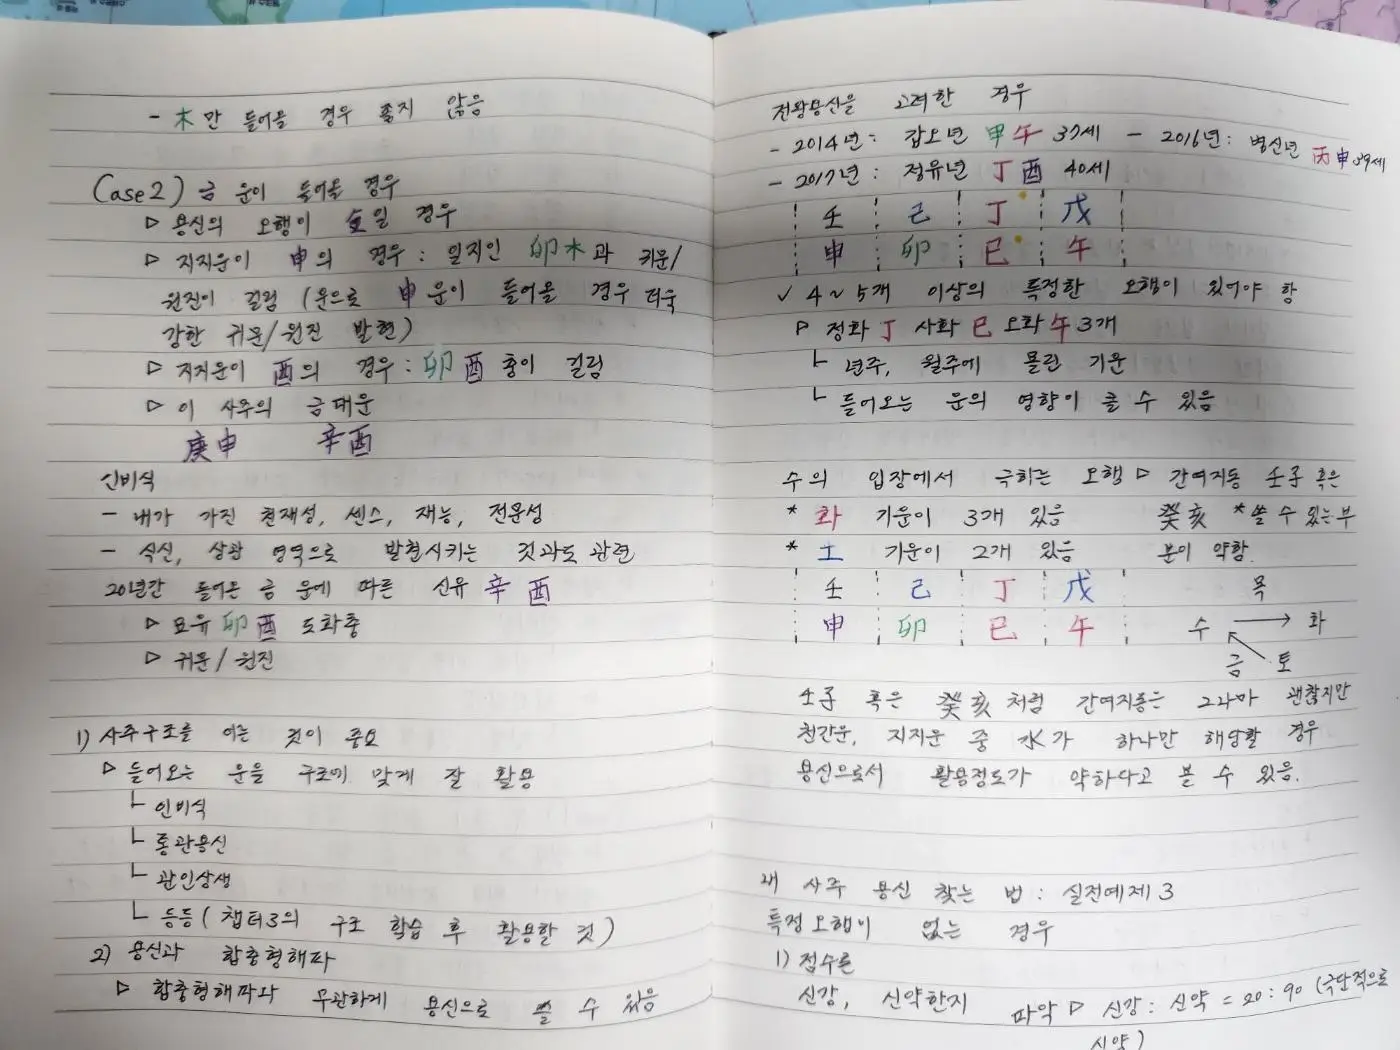 - 木만 들어올 경우 좋지 않음
Case2) 금 운이 들어올 경우
▷ 용신의 오행이 金일 경우
▷ 지지운이 申의 경우 : 일지인 卯木과 귀문/
원진이 걸림 (운으로 申운이 들어올 경우 더욱
강한 귀문/원진 발현)
▷ 지지운이 酉의 경우 : 卯酉 충이 걸림
▷ 이 사주의 금대운
庚申 辛酉
인비식
- 내가 가진 천재성, 센스, 재능, 전문성
- 식신, 상관 영역으로 발현시키는 것과도 관련
20년간 들어온 금 운에 따른 신유 辛酉
▷ 묘유 卯酉 도화충
▷ 귀문/원진
1) 사주구조를 아는 것이 중요
▷ 들어오는 운을 구조에 맞게 잘 활용
└ 인비식
└ 통관용신
└ 관인상생
└ 등등 (챕터3의 구조 학습 후 활용할 것)
2) 용신과 합충형해파
▷ 합충형해파와 무관하게 용신으로 쓸 수 있음
전왕용신을 고려한 경우
- 2014년 : 갑오년 甲午 37세 - 2016년 : 병신년 丙申 39세
- 2017년 : 정유년 丁酉 40세
壬 己 丁 戊
申 卯 巳 午
✓ 4~5개 이상의 특정한 오행이 있어야 함
▷ 정화 丁 사화 巳 오화 午 3개
└ 년주, 월주에 몰린 기운
└ 들어오는 운의 영향이 클 수 있음
수의 입장에서 극하는 오행 ▷ 간여지동 壬子 혹은
* 화 기운이 3개 있음 癸亥 *쓸 수 있는 부
* 土 기운이 2개 있음 분이 약함.
壬 己 丁 戊 목
申 卯 巳 午 수 → 화
금 토
壬子 혹은 癸亥처럼 간여지동은 그나마 괜찮지만
천간운, 지지운 중 水가 하나만 해당할 경우
용신으로서 활용정도가 약하다고 볼 수 있음.
내 사주 용신 찾는 법 : 실전예제 3
특정오행이 없는 경우
1) 점수론
신강, 신약한지 파악 ▷ 신강 : 신약 = 20 : 90 (극단적으로
신약)